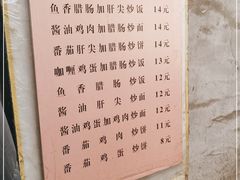 鱼香腊肠加腊肠炒面 14元
酱油鸡蛋加肝尖炒面 14元
番茄肝尖加腊肠炒饼 14元
咖喱鸡蛋加腊肠炒饼 13元
鱼香腊肠炒面 12元
酱油肝尖炒面 12元
酱油鸡蛋加鸡肉炒面 12元
番茄鸡肉炒饼 11元
番茄鸡蛋炒饼 8元